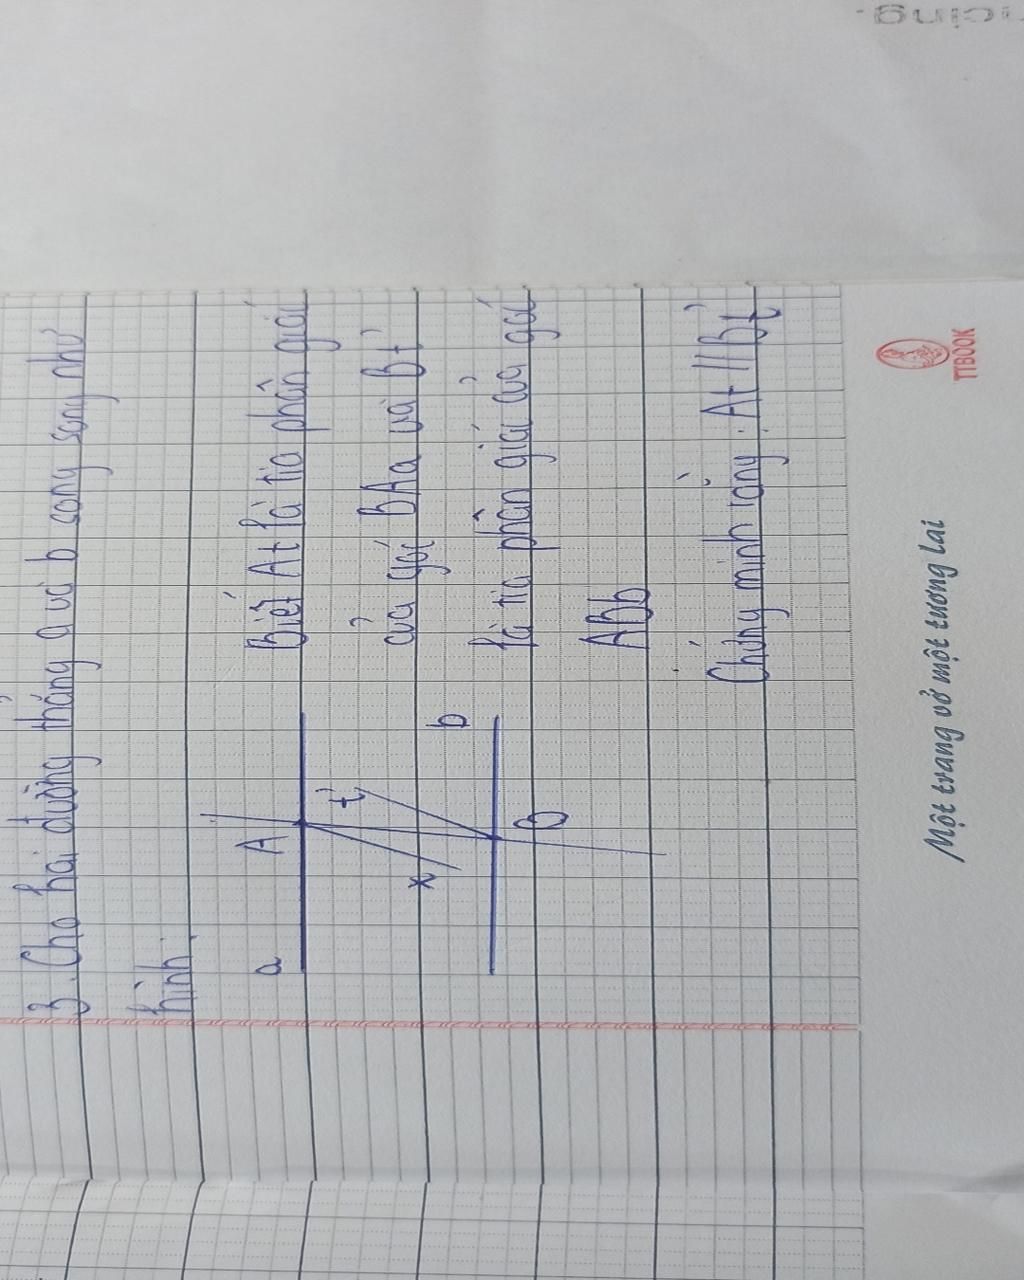 3. Cho hai đường thẳng a và b song song như
hình.
a
A
t
x
t'
b
B
Biết At là tia phân giác
của góc BAa và Bt'
là tia phân giác của góc
ABb
Chứng minh rằng: At // Bt'
TTBOOK
Một trang vở một tương lai